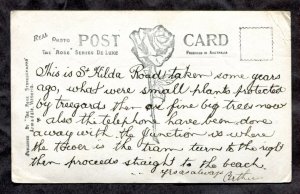 REAL PHOTO
POST CARD
THE "ROSE" SERIES DE LUXE
PRODUCED IN AUSTRALIA
PUBLISHED BY THE ROSE STEREOGRAPH
ARMADALE, VICTORIA
This is St Kilda Road taken some years
ago, what were small plants protected
by treegards then are fine big trees now
also the telephone have been done
away with the Junction is where
the tower is the tram turns to the right
then proceeds straight to the beach
yours as always
Arthur